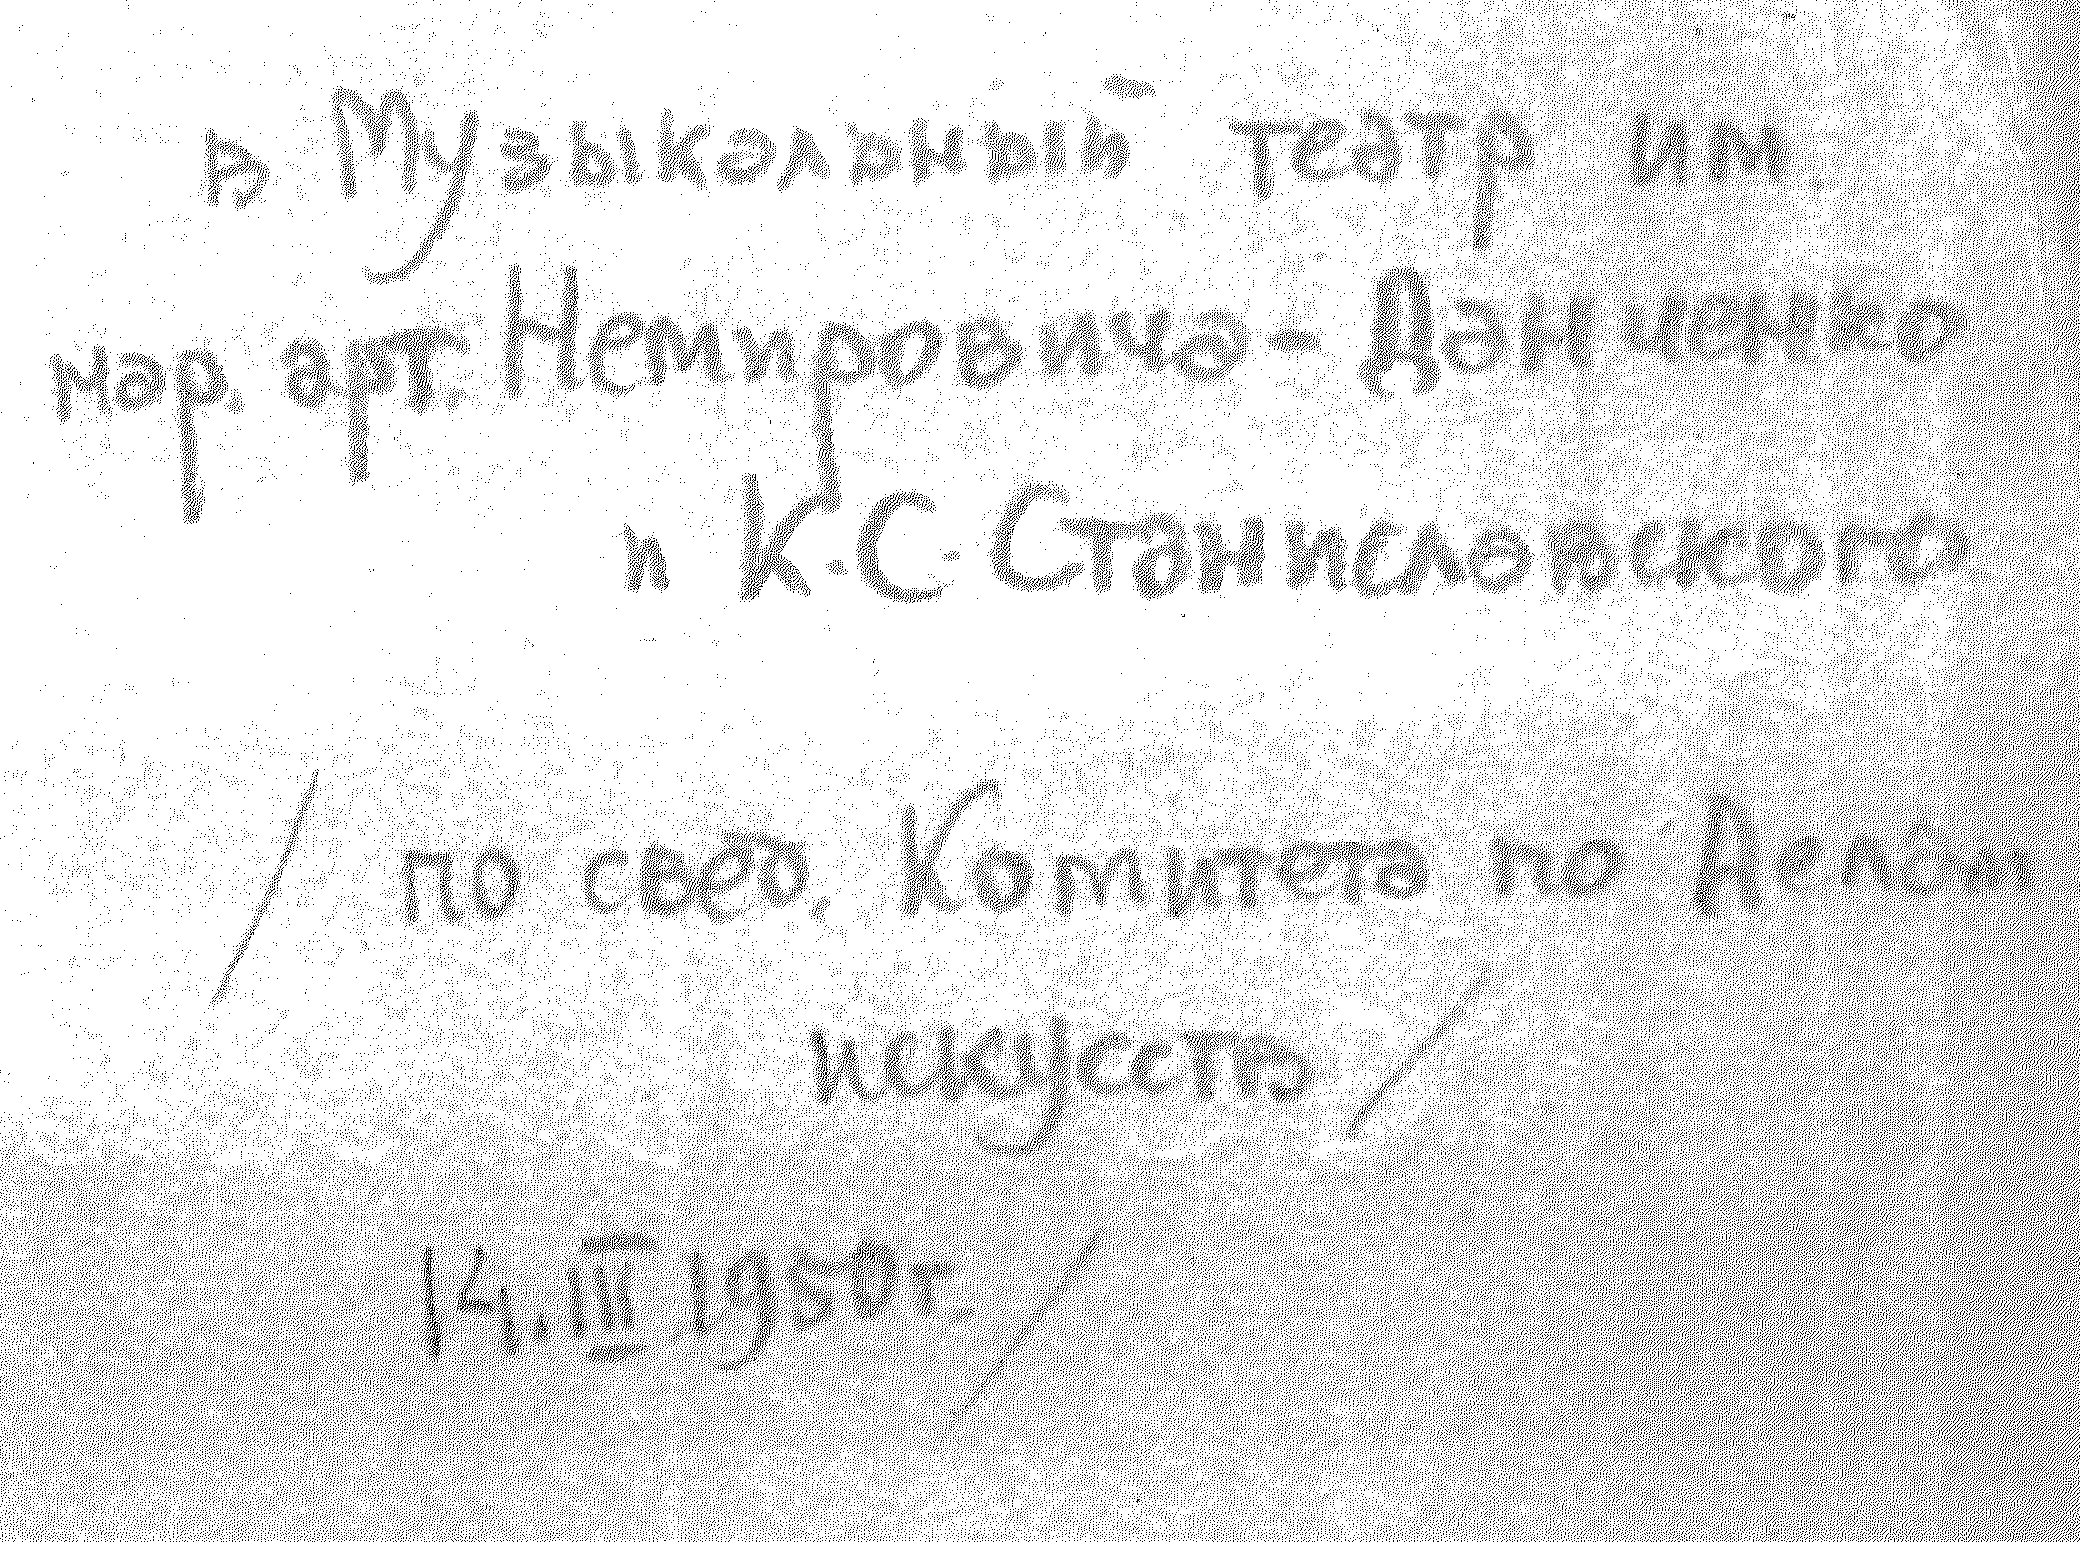 в Музыкальный театр им.
нар. арт. Немировича-Данченко
и К.С. Станиславского
по свед. Комитета по Делам
искусств
14. III 1950г.